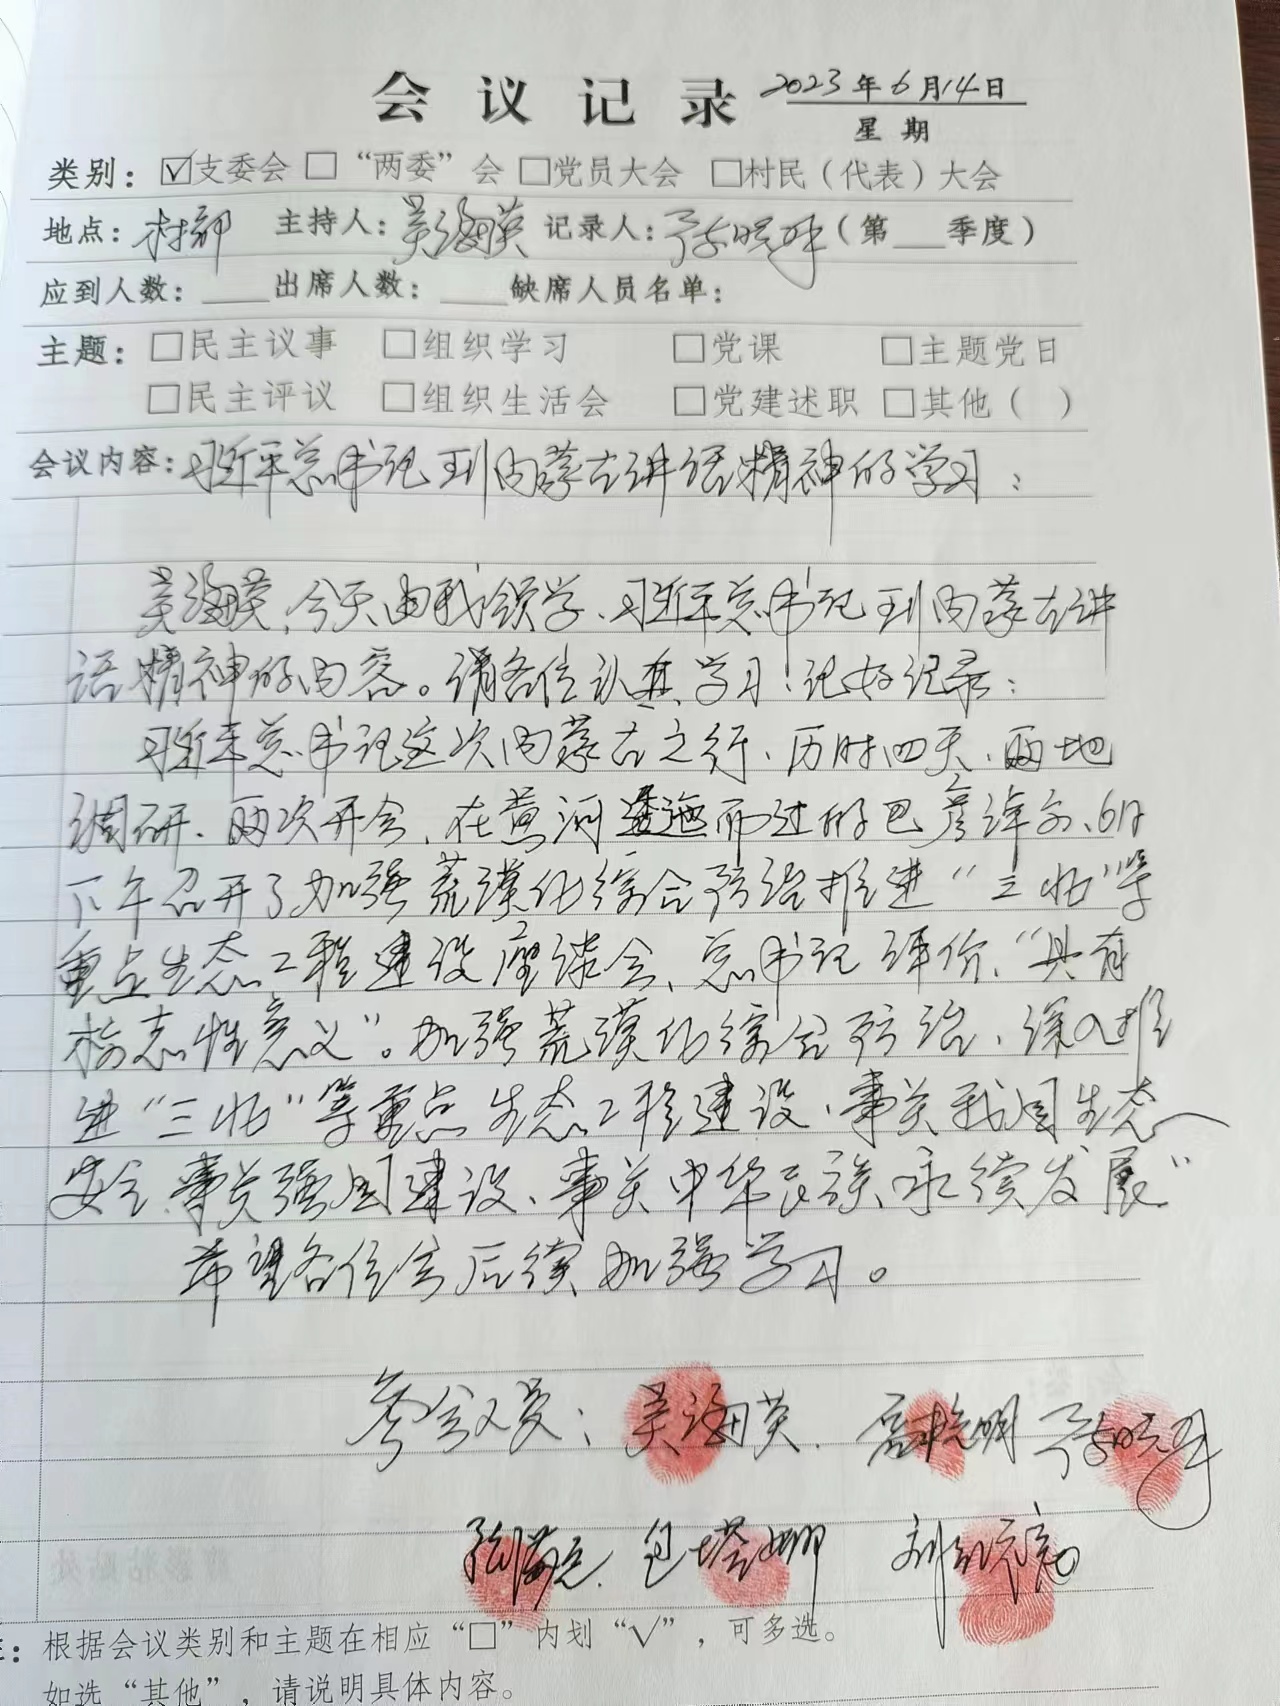 会议记录 2023年6月14日
星期
类别：☑支委会 □“两委”会 □党员大会 □村民（代表）大会
地点：村部 主持人：吴海英 记录人： （第___季度）
应到人数：____出席人数：____缺席人员名单：
主题：□民主议事 □组织学习 □党课 □主题党日
□民主评议 □组织生活会 □党建述职 □其他（ ）
会议内容：习近平总书记到内蒙古讲话精神的学习：
吴海英：今天由我领学、习近平总书记到内蒙古讲
话精神的内容。请各位认真学习！记好记录：
习近平总书记这次内蒙古之行、历时四天、两地
调研、两次开会、在黄河逶迤而过的巴彦淖尔、6日
下午召开了加强荒漠化综合防治推进“三北”等
重点生态工程建设座谈会、总书记评价、“具有
标志性意义”。加强荒漠化综合防治、深入推
进“三北”等重点生态工程建设、事关我国生态
安全、事关强国建设、事关中华民族永续发展”
希望各位会后续加强学习。
参会人员：吴海英、 晓明
包塔娜 刘
根据会议类别和主题在相应“□”内划“√”，可多选。
如选“其他”，请说明具体内容。